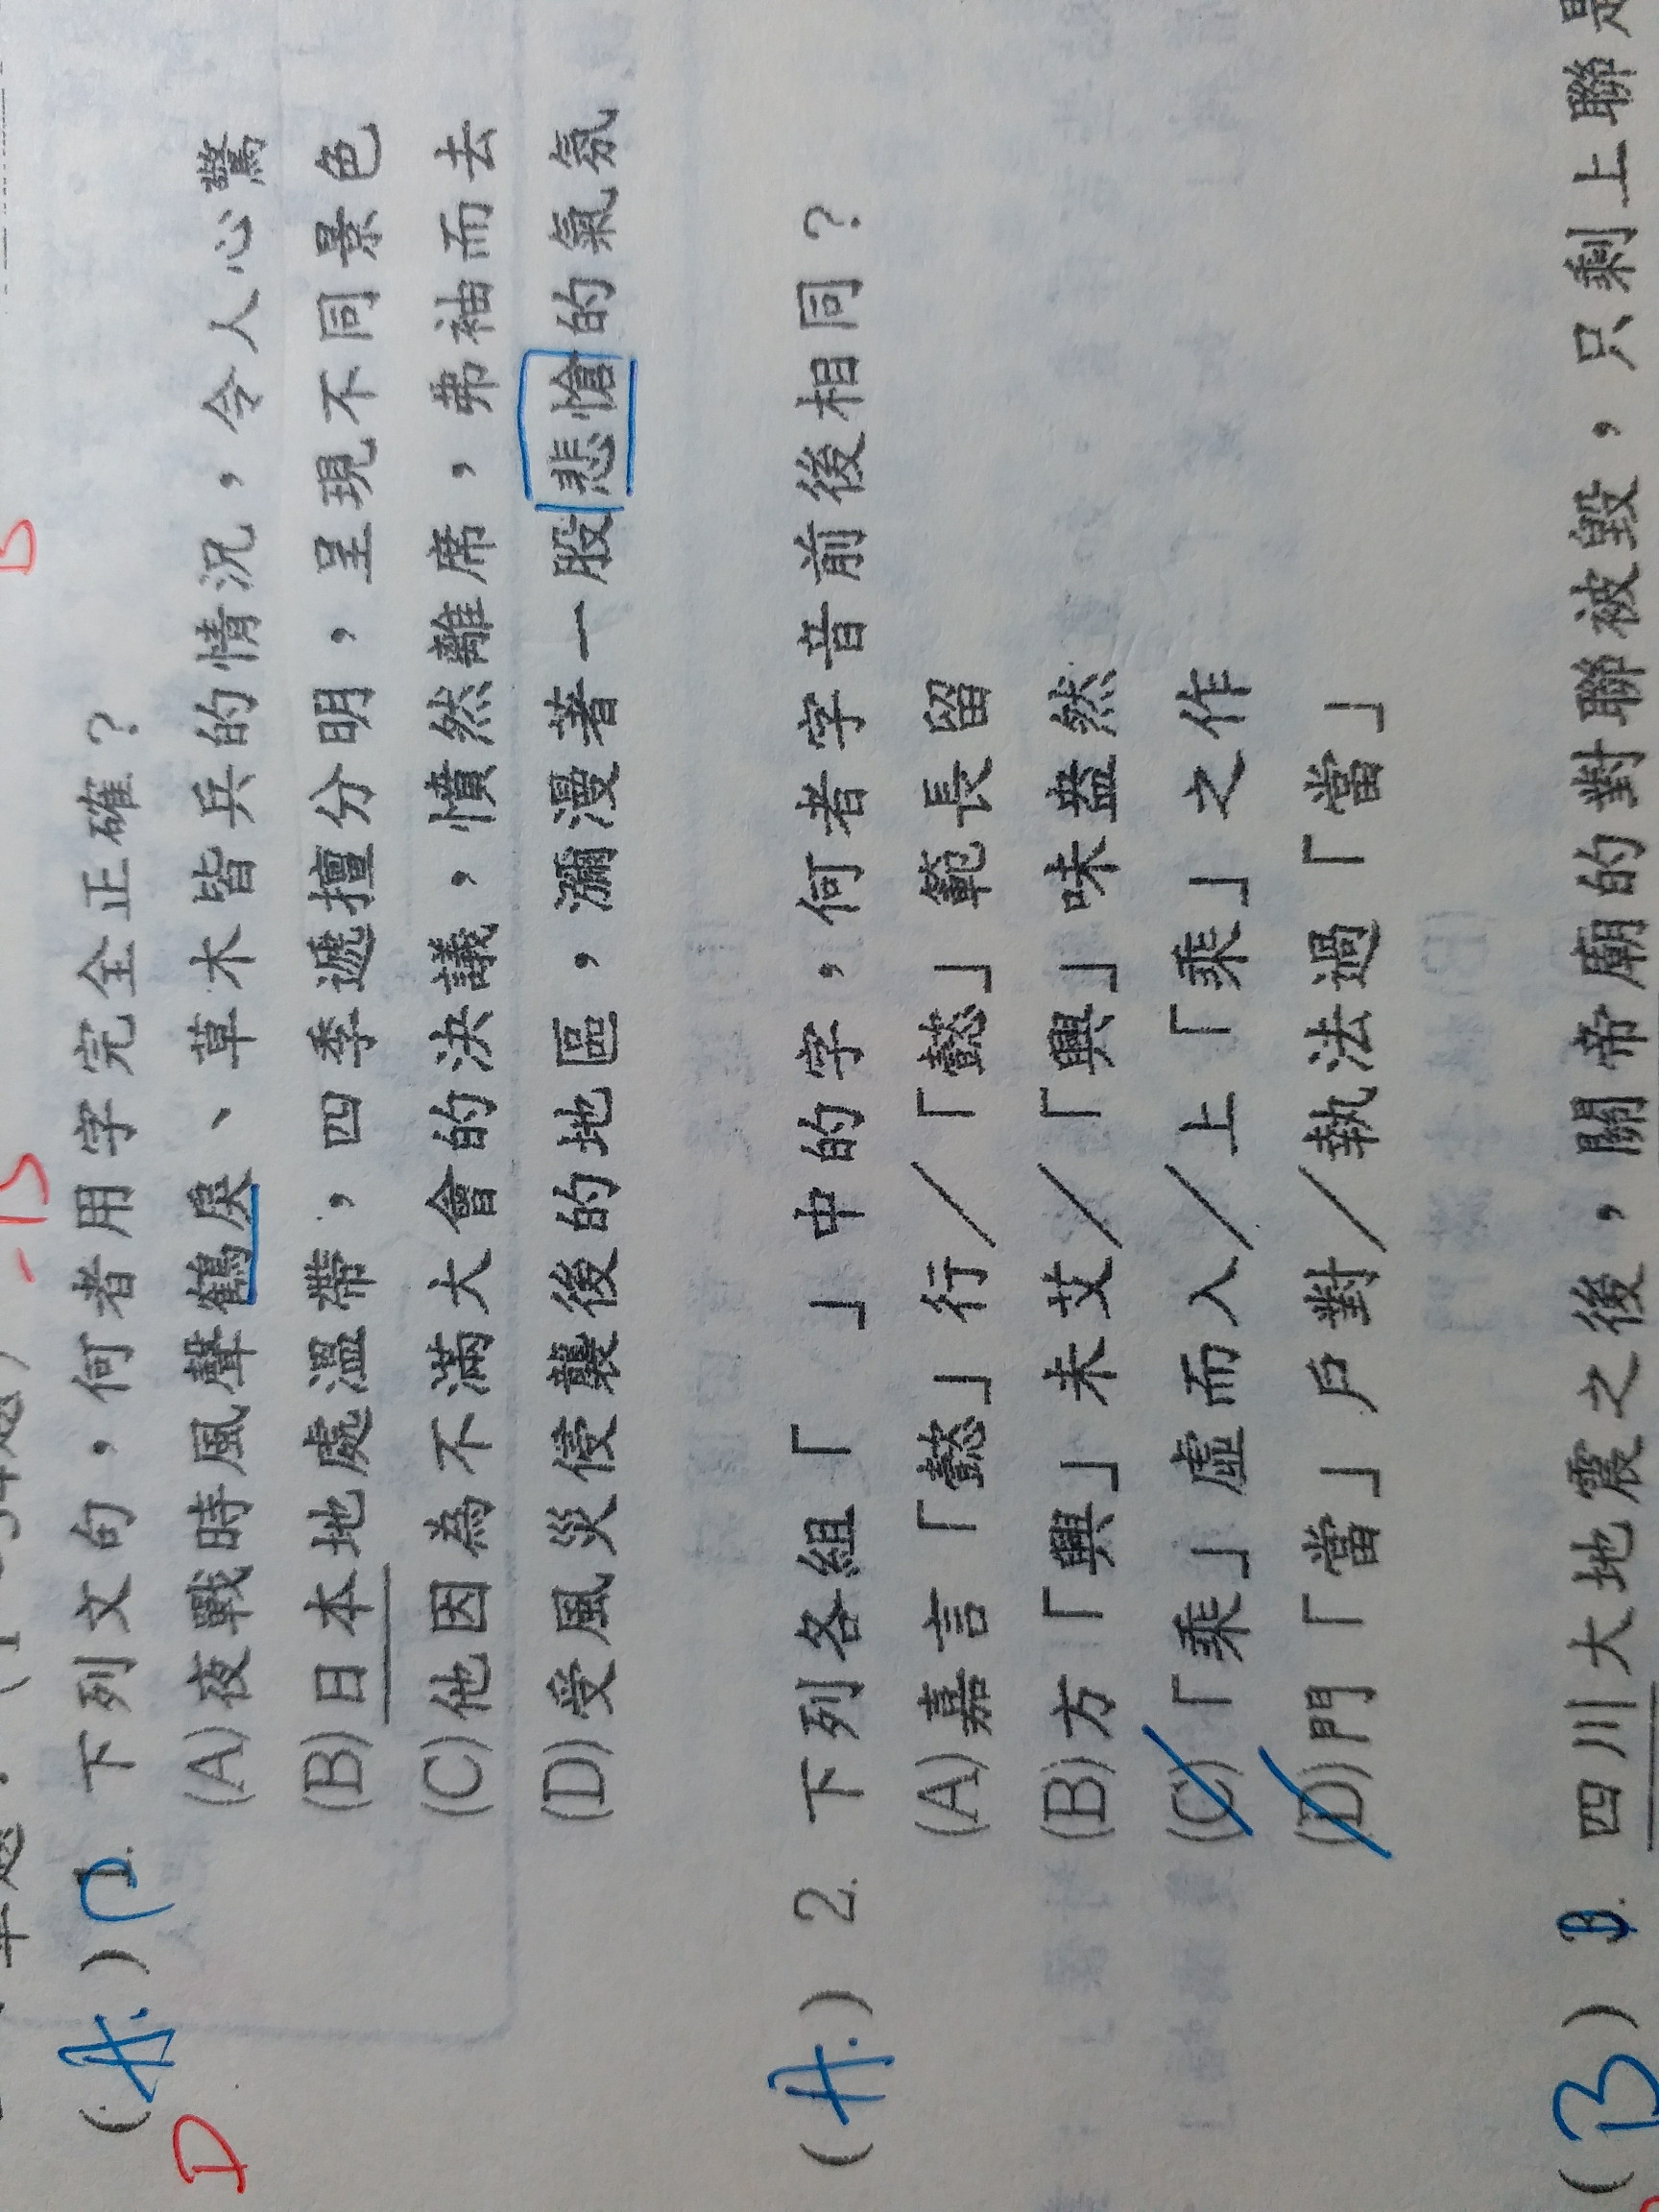 (A.) 1. 下列文句，何者用字完全正確？
D
(A)夜戰時風聲鶴戾、草木皆兵的情況，令人心驚
(B)日本地處溫帶，四季遞擅分明，呈現不同景色
(C)他因為不滿大會的決議，憤然離席，弗袖而去
(D)受風災侵襲後的地區，瀰漫著一股悲愴的氣氛
(A.) 2. 下列各組「 」中的字，何者字音前後相同？
(A)嘉言「懿」行／「懿」範長留
(B)方「興」未艾／「興」味盎然
(C)「乘」虛而入／上「乘」之作
(D)門「當」戶對／執法過「當」
(B) 3. 四川大地震之後，關帝廟的對聯被毀，只剩上聯是